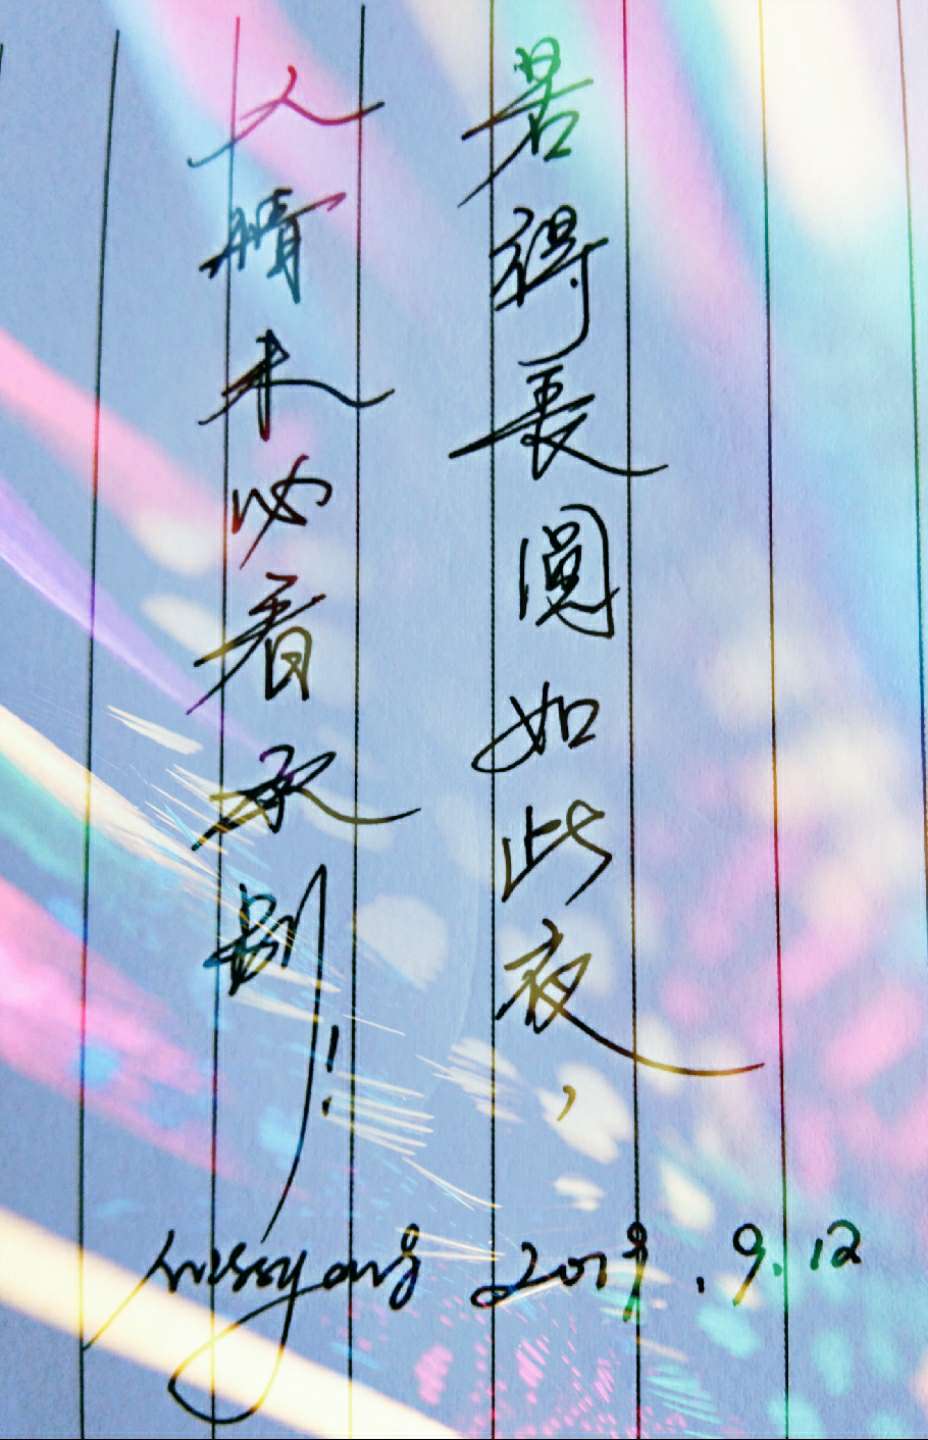 若得長圆如此夜，
人情未必看承别！
missyang 2019.9.12